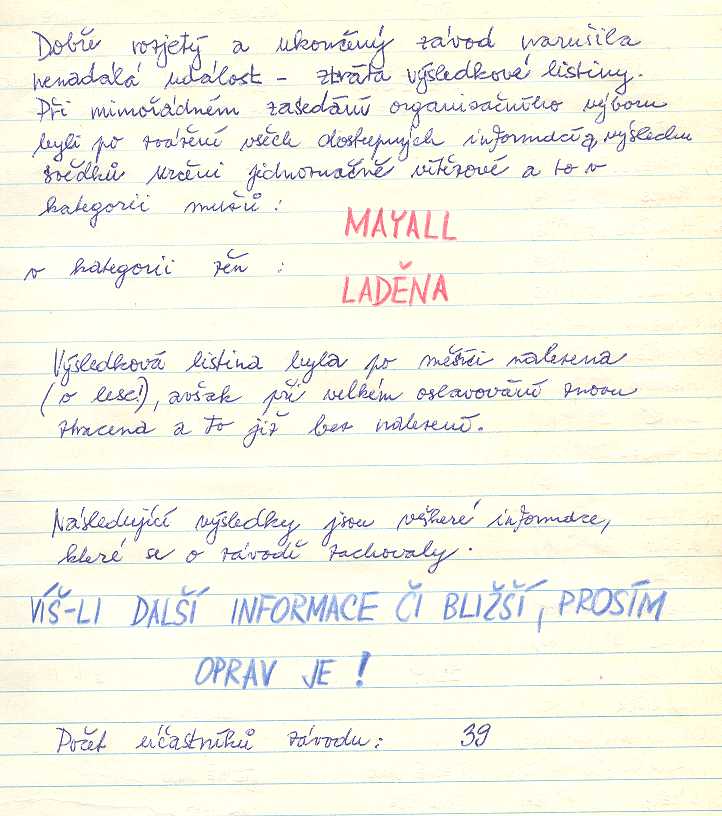 Dobře rozjetý a ukončený závod narušila
nenadálá událost – ztráta výsledkové listiny.
Při mimořádném zasedání organisačního výboru
byli po zvážení všech dostupných informací a výslechu
svědků určeni jednoznačně vítězové a to v
kategorii mužů :
MAYALL
v kategorii žen :
LADĚNA
Výsledková listina byla po měsíci nalezena
(v lese!), avšak při velkém oslavování znovu
ztracena a to již bez nalezení.
Následující výsledky jsou veškeré informace,
které se o závodě zachovaly.
VÍŠ-LI DALŠÍ INFORMACE ČI BLIŽŠÍ, PROSÍM
OPRAV JE !
Počet účastníků závodu : 39